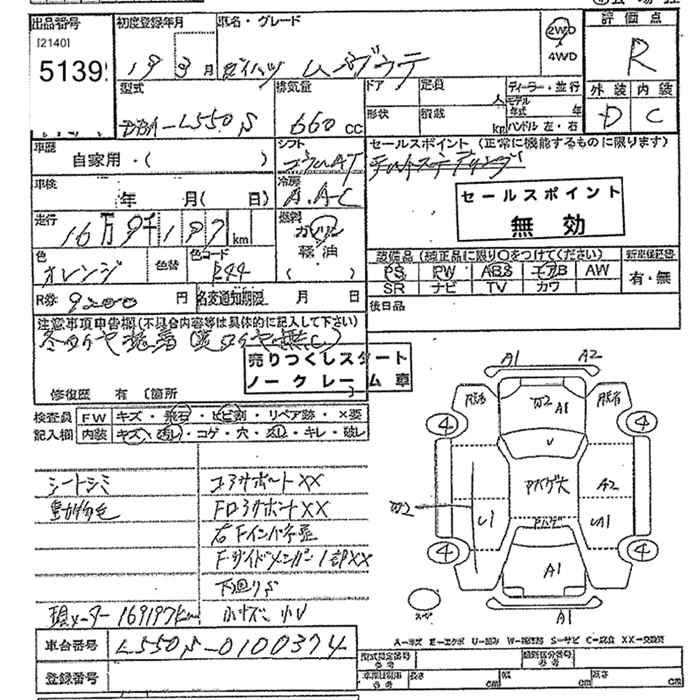 出品番号
[2140]
5139
初度登録年月
19 3月
車名・グレード
ダイハツ ムーヴラテ
2WD
4WD
評価点
R
外装 内装
D C
型式
DBA-L550S
排気量
660cc
ドア
定員
人
形状
積載
kg
ディーラー・並行
モデル
年式 年
ハンドル 左・右
車歴
自家用・( )
シフト
コラムAT
セールスポイント (正常に機能するものに限ります)
セールスポイント
無効
車検
年 月( 日)
冷房
A.A-C
走行
16万9千197km
燃料
ガソリン
軽油
( )
色
オレンジ
色替
色コード
R44
設備品 (純正品に限り○をつけてください)
PS PW ABS エアB AW
SR ナビ TV カワ
新車保証書
有・無
R券 9200円
名変通知期限 月 日
後日品
注意事項申告欄 (不具合内容等は具体的に記入して下さい)
冬タイヤ装着 (夏タイヤ無し)
売りつくしスタート
ノークレーム車
修復歴 有 (箇所
検査員
記入欄
FW キズ・飛石・ヒビ割・リペア跡・×要
内装 キズ・汚レ・コゲ・穴・スレ・キレ・破レ
シートシミ
コアサポートXX
右Fインパネ歪
下廻りS
現メーター 169197km
小キズ 小U
A1 A2
W2 A1
U
4 4
W2
U1
Aハゲ大
A2
U1
Aハゲ
4 4
A1
A1
スペア
A-キズ E-エクボ U-凹み W-補修跡 S-サビ C-腐食 XX-交換済
車台番号 L550S-0100374
登録番号
型式指定番号
参考
類別区分番号
参考
長さ cm 幅 cm 高さ cm